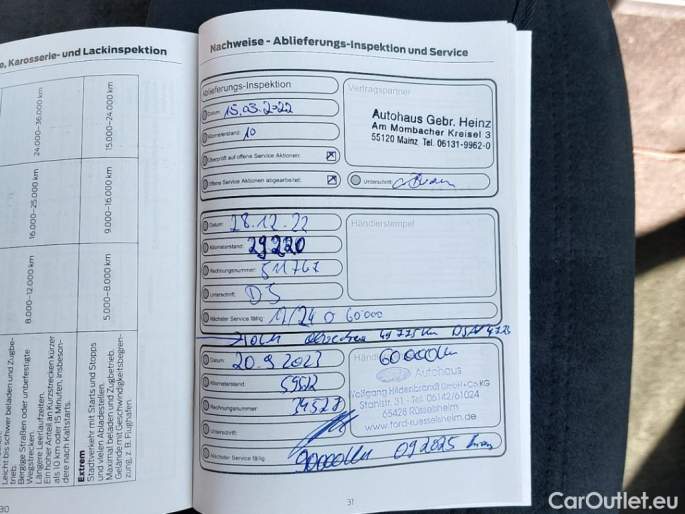 e, Karosserie- und Lackinspektion
24.000–36.000 km
15.000–24.000 km
16.000–25.000 km
9.000–16.000 km
8.000–12.000 km
5.000–8.000 km
Leicht bis schwer beladen und Zugbe-
trieb.
Bergige Straßen oder unbefestigte
Wegstrecken.
Längere Leerlaufzeiten.
Ein hoher Anteil an Kurzstrecken kürzer
als 10 km oder 15 Minuten, insbeson-
dere nach Kaltstarts.
Extrem
Stadtverkehr mit Starts und Stopps
und vielen Abladestellen.
Maximal beladen und Zugbetrieb.
Gelände mit Geschwindigkeitsbegren-
zung, z. B. Flughafen.
30
Nachweise - Ablieferungs-Inspektion und Service
Ablieferungs-Inspektion
Datum: 15.03.2022
Kilometerstand: 10
Überprüft auf offene Service Aktionen:
Offene Service Aktionen abgearbeitet:
Vertragspartner
Autohaus Gebr. Heinz
Am Mombacher Kreisel 3
55120 Mainz Tel. 06131-9962-0
Unterschrift:
Datum: 28.12.22
Kilometerstand: 29220
Rechnungsnummer: 511767
Unterschrift: DS
Nächster Service fällig: 11/24 o 60000
Händlerstempel
Datum: 20.9.2023
Kilometerstand:
Rechnungsnummer: 34527
Unterschrift:
Nächster Service fällig: 90000km 09.2025
60000km
Autohaus
Wolfgang Hildenbrand GmbH+Co KG
Stahlstr. 31 - Tel. 06142/61024
65428 Rüsselsheim
www.ford-ruesselsheim.de
31
CarOutlet.eu